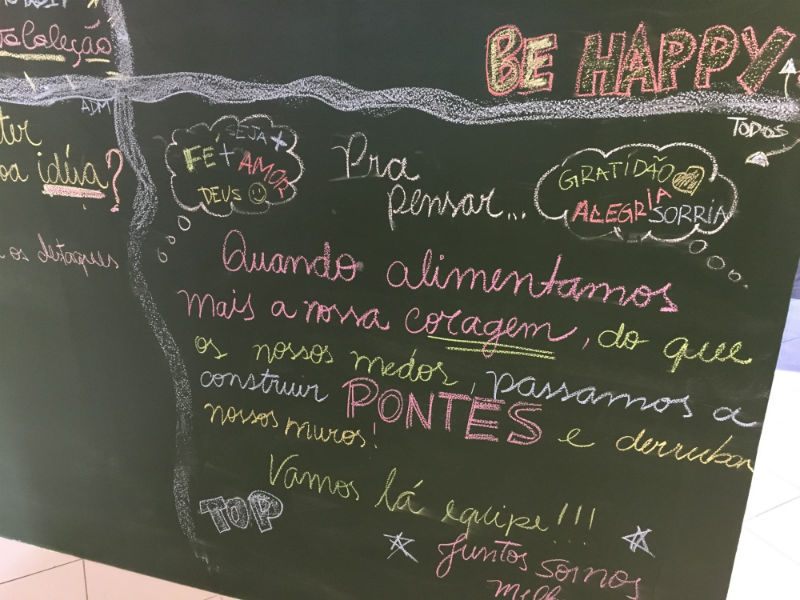 Coleção
ADM
ter
oa idéia?
os destaques
BE HAPPY
TODOS
SEJA +
FÉ + AMOR
DEUS
Pra
pensar...
GRATIDÃO
ALEGRIA SORRIA
Quando alimentamos
mais a nossa coragem, do que
os nossos medos, passamos a
construir PONTES e derrubar
nossos muros!
Vamos lá equipe!!!
TOP
Juntos somos